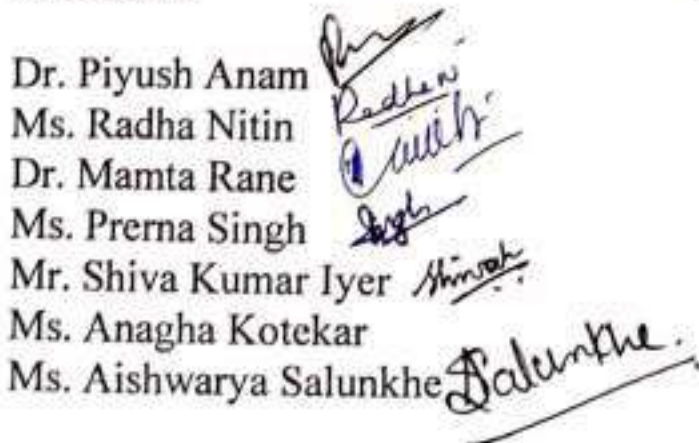 Dr. Piyush Anam
Ms. Radha Nitin Radha
Dr. Mamta Rane
Ms. Prerna Singh Singh
Mr. Shiva Kumar Iyer
Ms. Anagha Kotekar
Ms. Aishwarya Salunkhe Salunkhe.